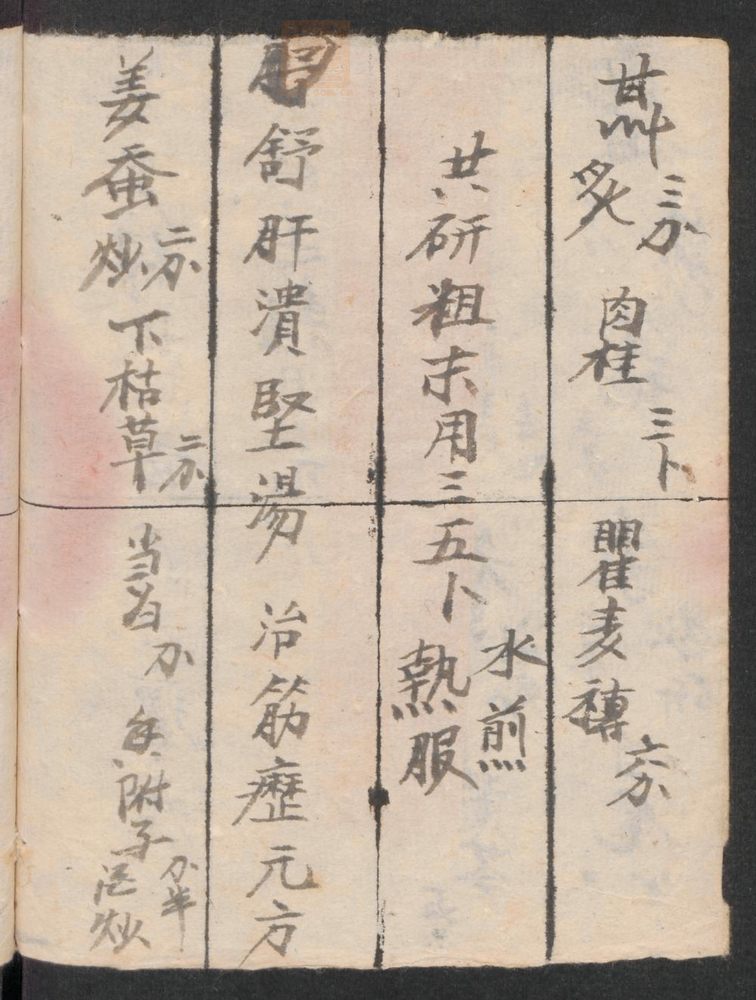 甘草炙三分 肉桂三卜 瞿麦穗六分
共研粗末用三五卜水煎熱服
舒肝潰堅湯 治筋癧元方
姜蚕炒二分 下枯草二分 当 分 香附子分半 炒